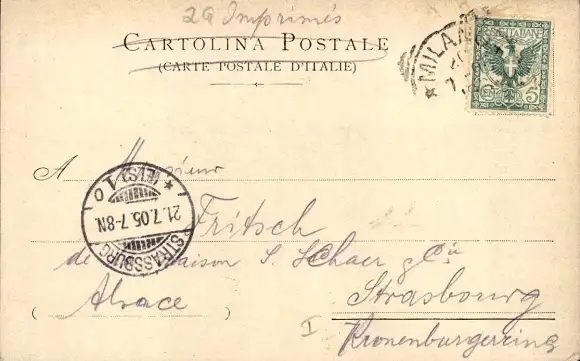 Imprimés
CARTOLINA POSTALE
(CARTE POSTALE D'ITALIE)
MILANO
POSTE ITALIANE
5
A Monsieur
Fritsch
de la maison S. Schaer & Cie
(Alsace)
Strasbourg
I Kronenburgerring
STRASSBURG
21.7.05.7-8N.
* (ELS.) 1 O